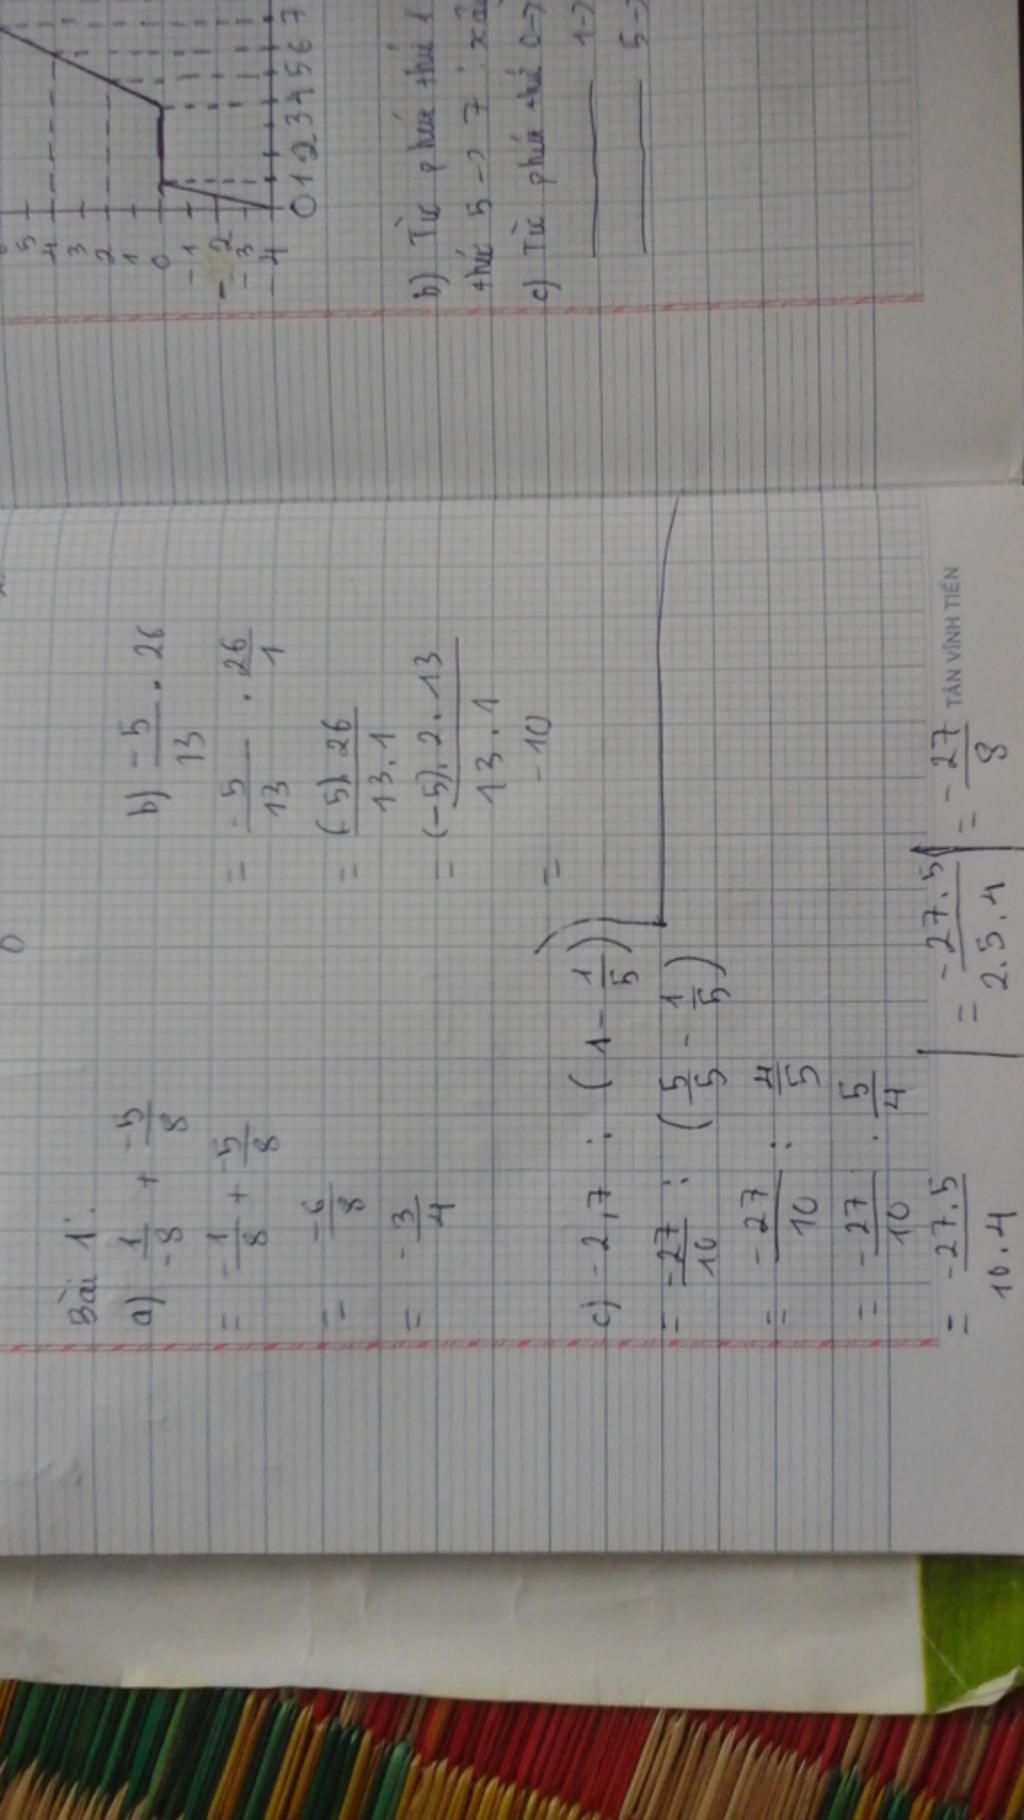 Bài 1:
a) 1/-8 + -5/8
= -1/8 + -5/8
= -6/8
= -3/4
b) -5/13 . 26
= -5/13 . 26/1
= (-5).26/13.1
= (-5).2.13/13.1
= -10
c) -2,7 : (1 - 1/5)
= -27/10 : (5/5 - 1/5)
= -27/10 : 4/5
= -27/10 . 5/4
= -27.5/10.4
= -27.5/2.5.4
= -27/8
TÂN VĨNH TIẾN
5
4
3
2
1
0
-1
-2
-3
-4
0 1 2 3 4 5 6 7
b) Từ phút thứ 1
thứ 5 -> 7
c) Từ phút thứ 0->
1->
5->